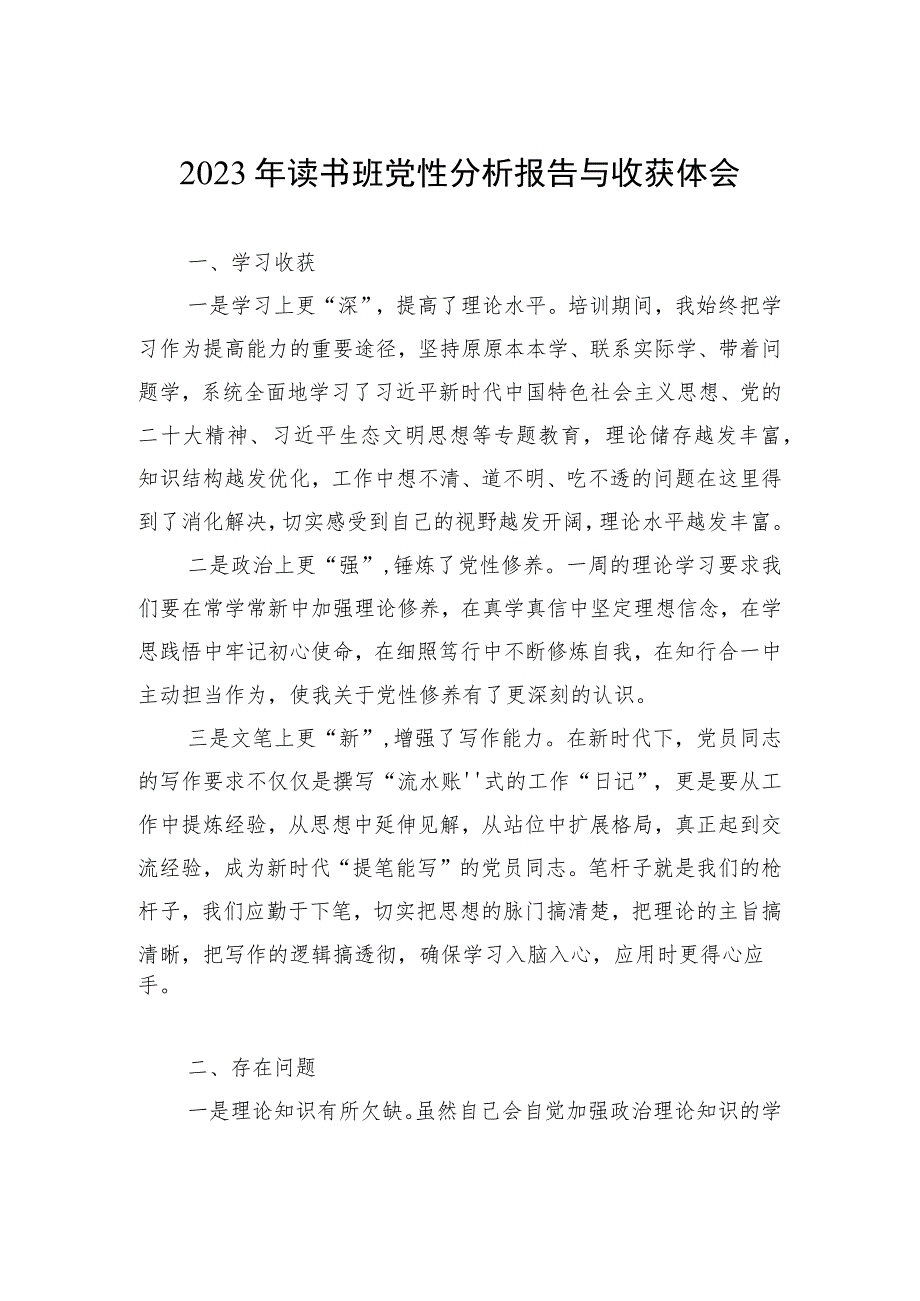 2023 年读书班党性分析报告与收获体会
一、学习收获
一是学习上更“深”，提高了理论水平。培训期间，我始终把学
习作为提高能力的重要途径，坚持原原本本学、联系实际学、带着问
题学，系统全面地学习了习近平新时代中国特色社会主义思想、党的
二十大精神、习近平生态文明思想等专题教育，理论储存越发丰富，
知识结构越发优化，工作中想不清、道不明、吃不透的问题在这里得
到了消化解决，切实感受到自己的视野越发开阔，理论水平越发丰富。
二是政治上更“强”,锤炼了党性修养。一周的理论学习要求我
们要在常学常新中加强理论修养，在真学真信中坚定理想信念，在学
思践悟中牢记初心使命，在细照笃行中不断修炼自我，在知行合一中
主动担当作为，使我关于党性修养有了更深刻的认识。
三是文笔上更“新”,增强了写作能力。在新时代下，党员同志
的写作要求不仅仅是撰写“流水账''式的工作“日记”，更是要从工
作中提炼经验，从思想中延伸见解，从站位中扩展格局，真正起到交
流经验，成为新时代“提笔能写”的党员同志。笔杆子就是我们的枪
杆子，我们应勤于下笔，切实把思想的脉门搞清楚，把理论的主旨搞
清晰，把写作的逻辑搞透彻，确保学习入脑入心，应用时更得心应
手。
二、存在问题
一是理论知识有所欠缺。虽然自己会自觉加强政治理论知识的学